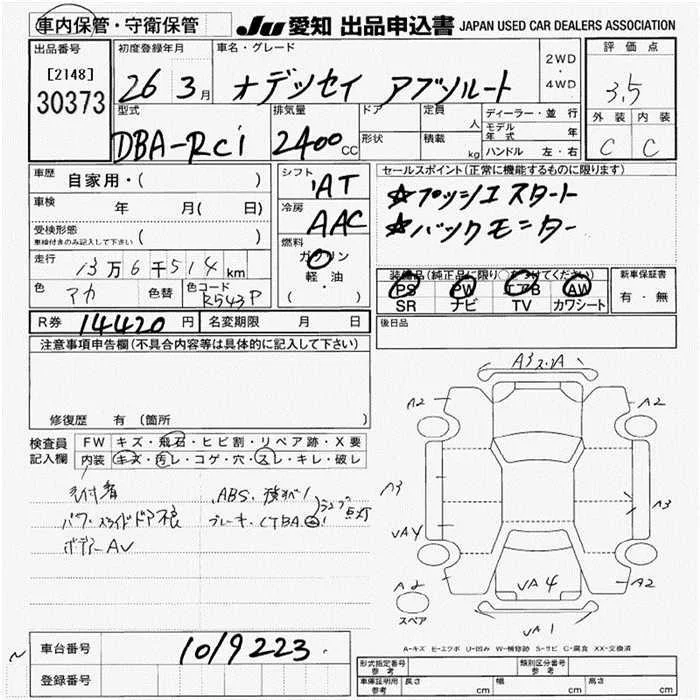 車内保管・守衛保管
JU 愛知 出品申込書 JAPAN USED CAR DEALERS ASSOCIATION
出品番号
[2148]
30373
初度登録年月
26 3月
車名・グレード
オデッセイ アブソルート
2WD
・
4WD
評価点
3.5
外装 内装
C C
型式
DBA-RC1
排気量
2400 CC
ドア
形状
定員
人
積載
kg
ディーラー・並行
モデル年式 年
ハンドル 左・右
車歴
自家用・( )
車検
年 月( 日)
受検形態
車検付きのみ記入して下さい ( )
走行
13万6千514km
色
アカ
色替
色コード
R543P
シフト
AT
冷房
AAC
燃料
ガソリン
軽・油
( ・ )
セールスポイント(正常に機能するものに限ります)
☆プッシュスタート
☆バックモニター
装備品(純正品に限り○をつけてください)
PS PW エアB AW
SR ナビ TV カワシート
新車保証書
有・無
R券 14420円
名変期限 月 日
後日品
注意事項申告欄(不具合内容等は具体的に記入して下さい)
修復歴 有(箇所
検査員記入欄
FW キズ・飛石・ヒビ割・リペア跡・X要
内装 キズ・汚レ・コゲ・穴・スレ・キレ・破レ
パワースライドドア不良
ボディーAU
ABS
ブレーキ
点灯
A3 A
A2 A2
A3 A3
UA4
A2 UA4 A2
スペア
UA1
A-キズ E-エクボ U-凹み W-補修跡 S-サビ C-腐食 XX-交換済
車台番号
1019223
登録番号
形式指定番号
参考
類別区分番号
参考
車庫証明用
参考
長さ cm 幅 cm 高さ cm